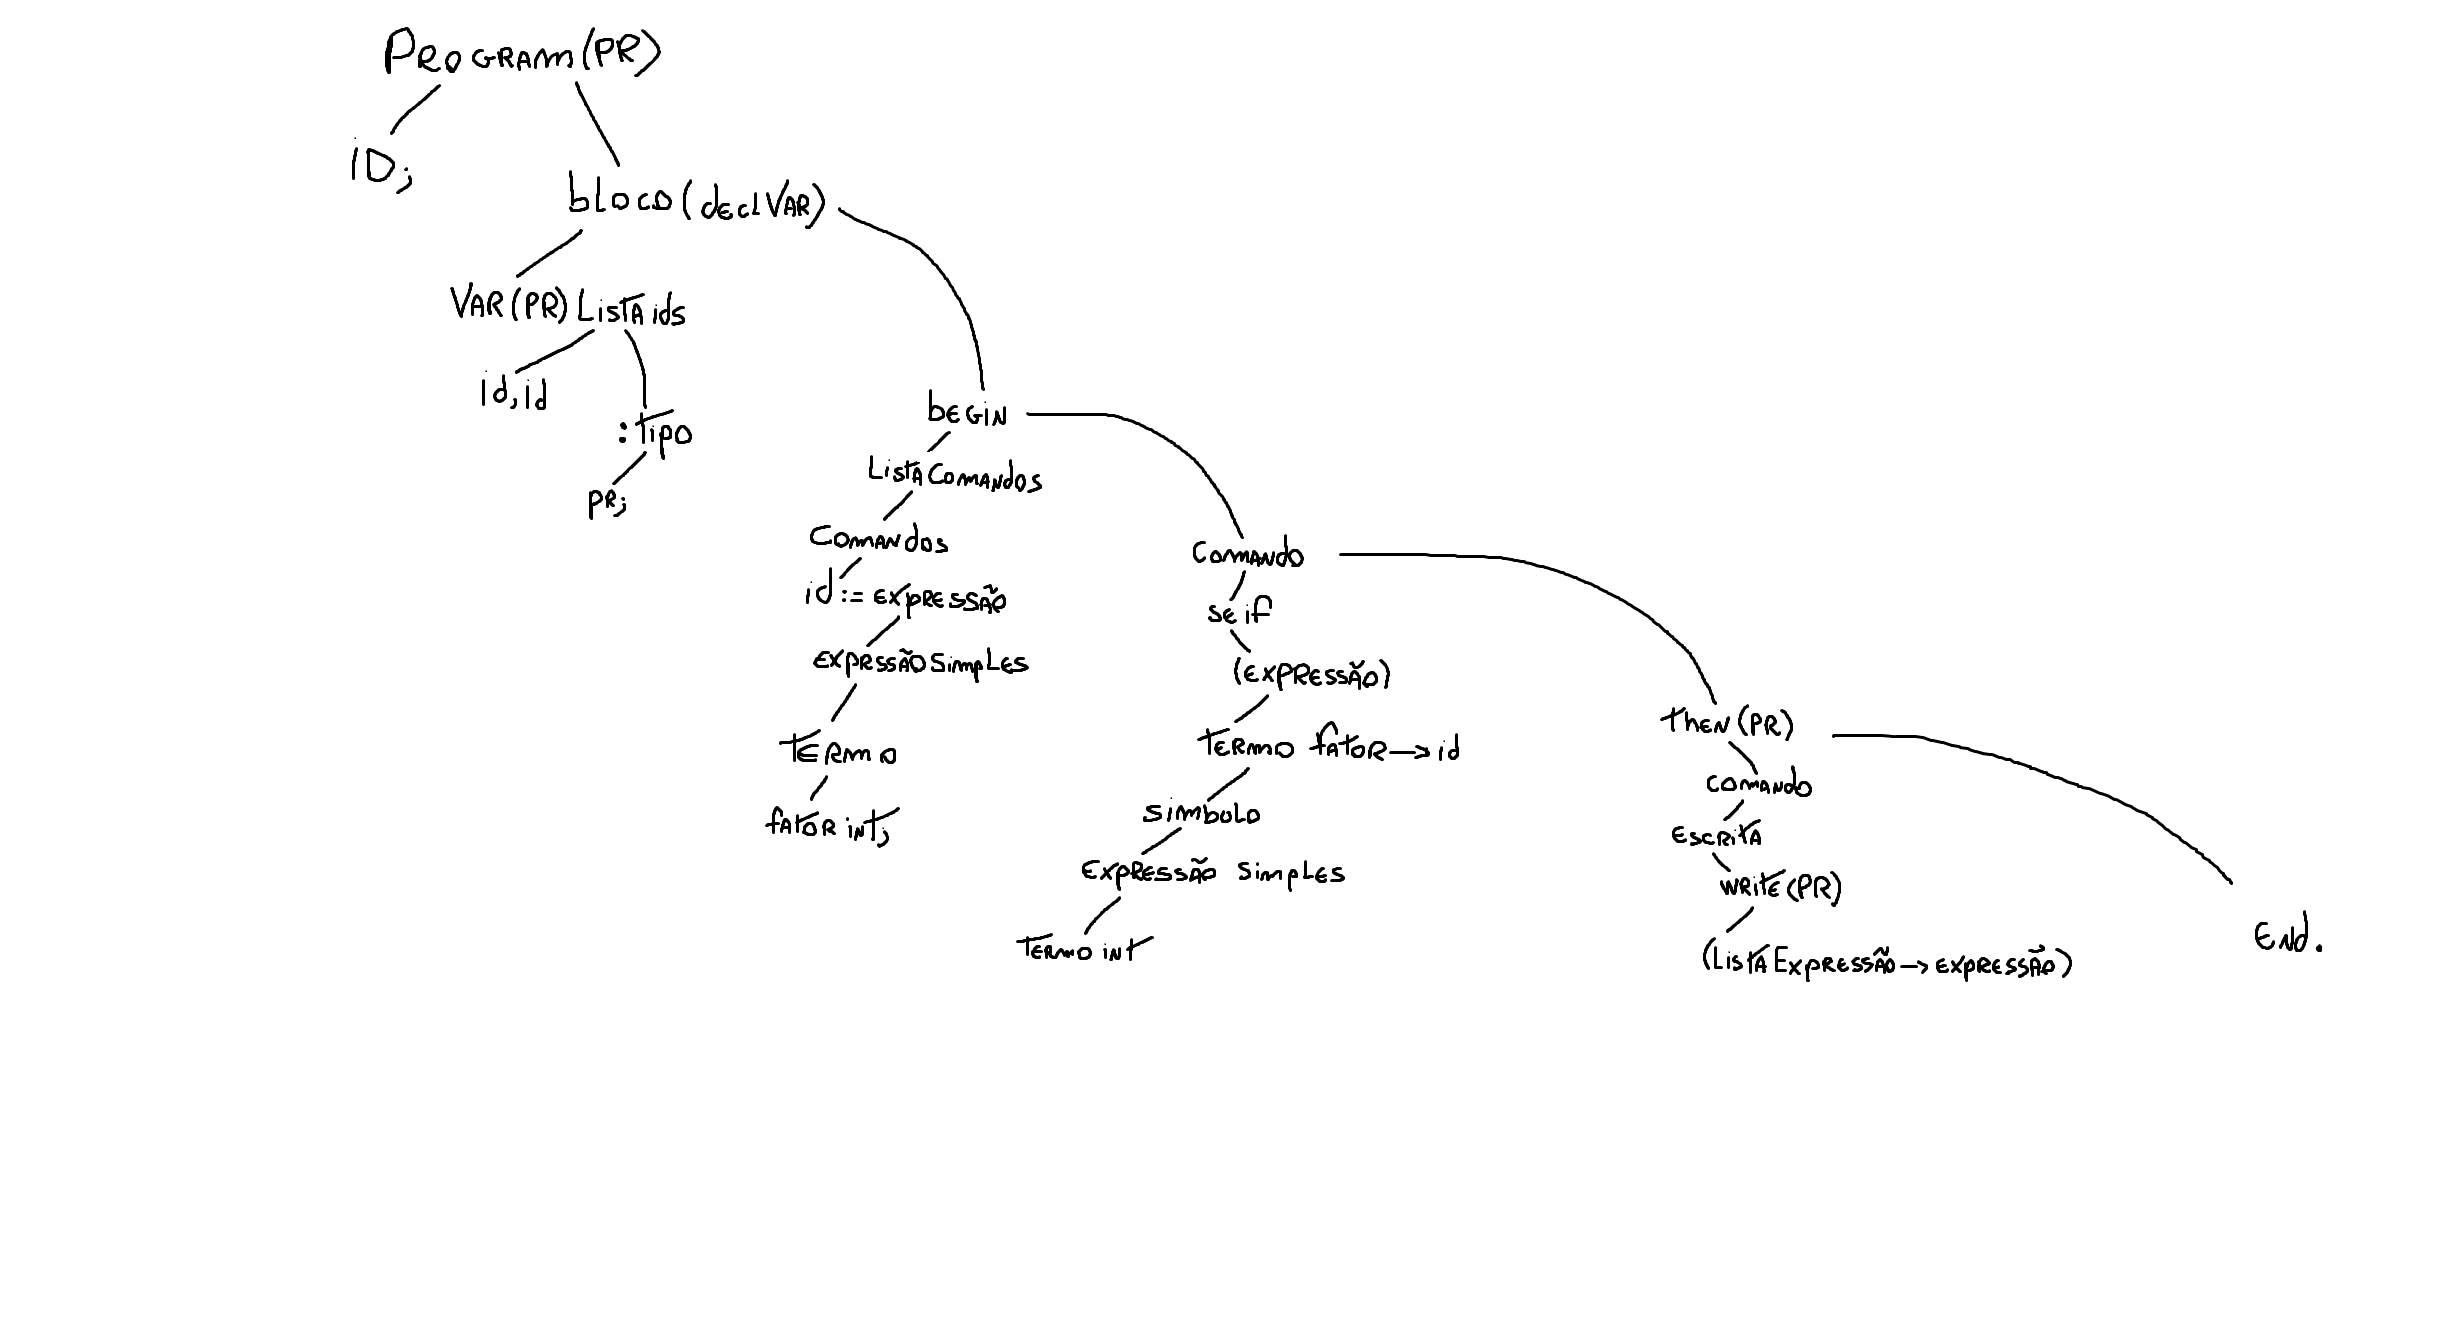 PROGRAM(PR)
ID;
bLOCO(dEclVAR)
VAR(PR) LISTA ids
id,id
:TIPO
PR;
bEGIN
LISTA COMANDOS
COMANdOS
id:= EXPRESSÃO
EXPRSSÃO SIMPLES
TERMO
fATOR INT;
COMANDO
SE if
(EXPRESSÃO)
TERMO fATOR→id
SIMBOLO
EXPRESSÃO SIMPLES
TERMO INT
ThEN(PR)
COMANdO
ESCRITA
WRITE(PR)
(LISTA EXPRESSÃO→EXPRESSÃO)
ENd.